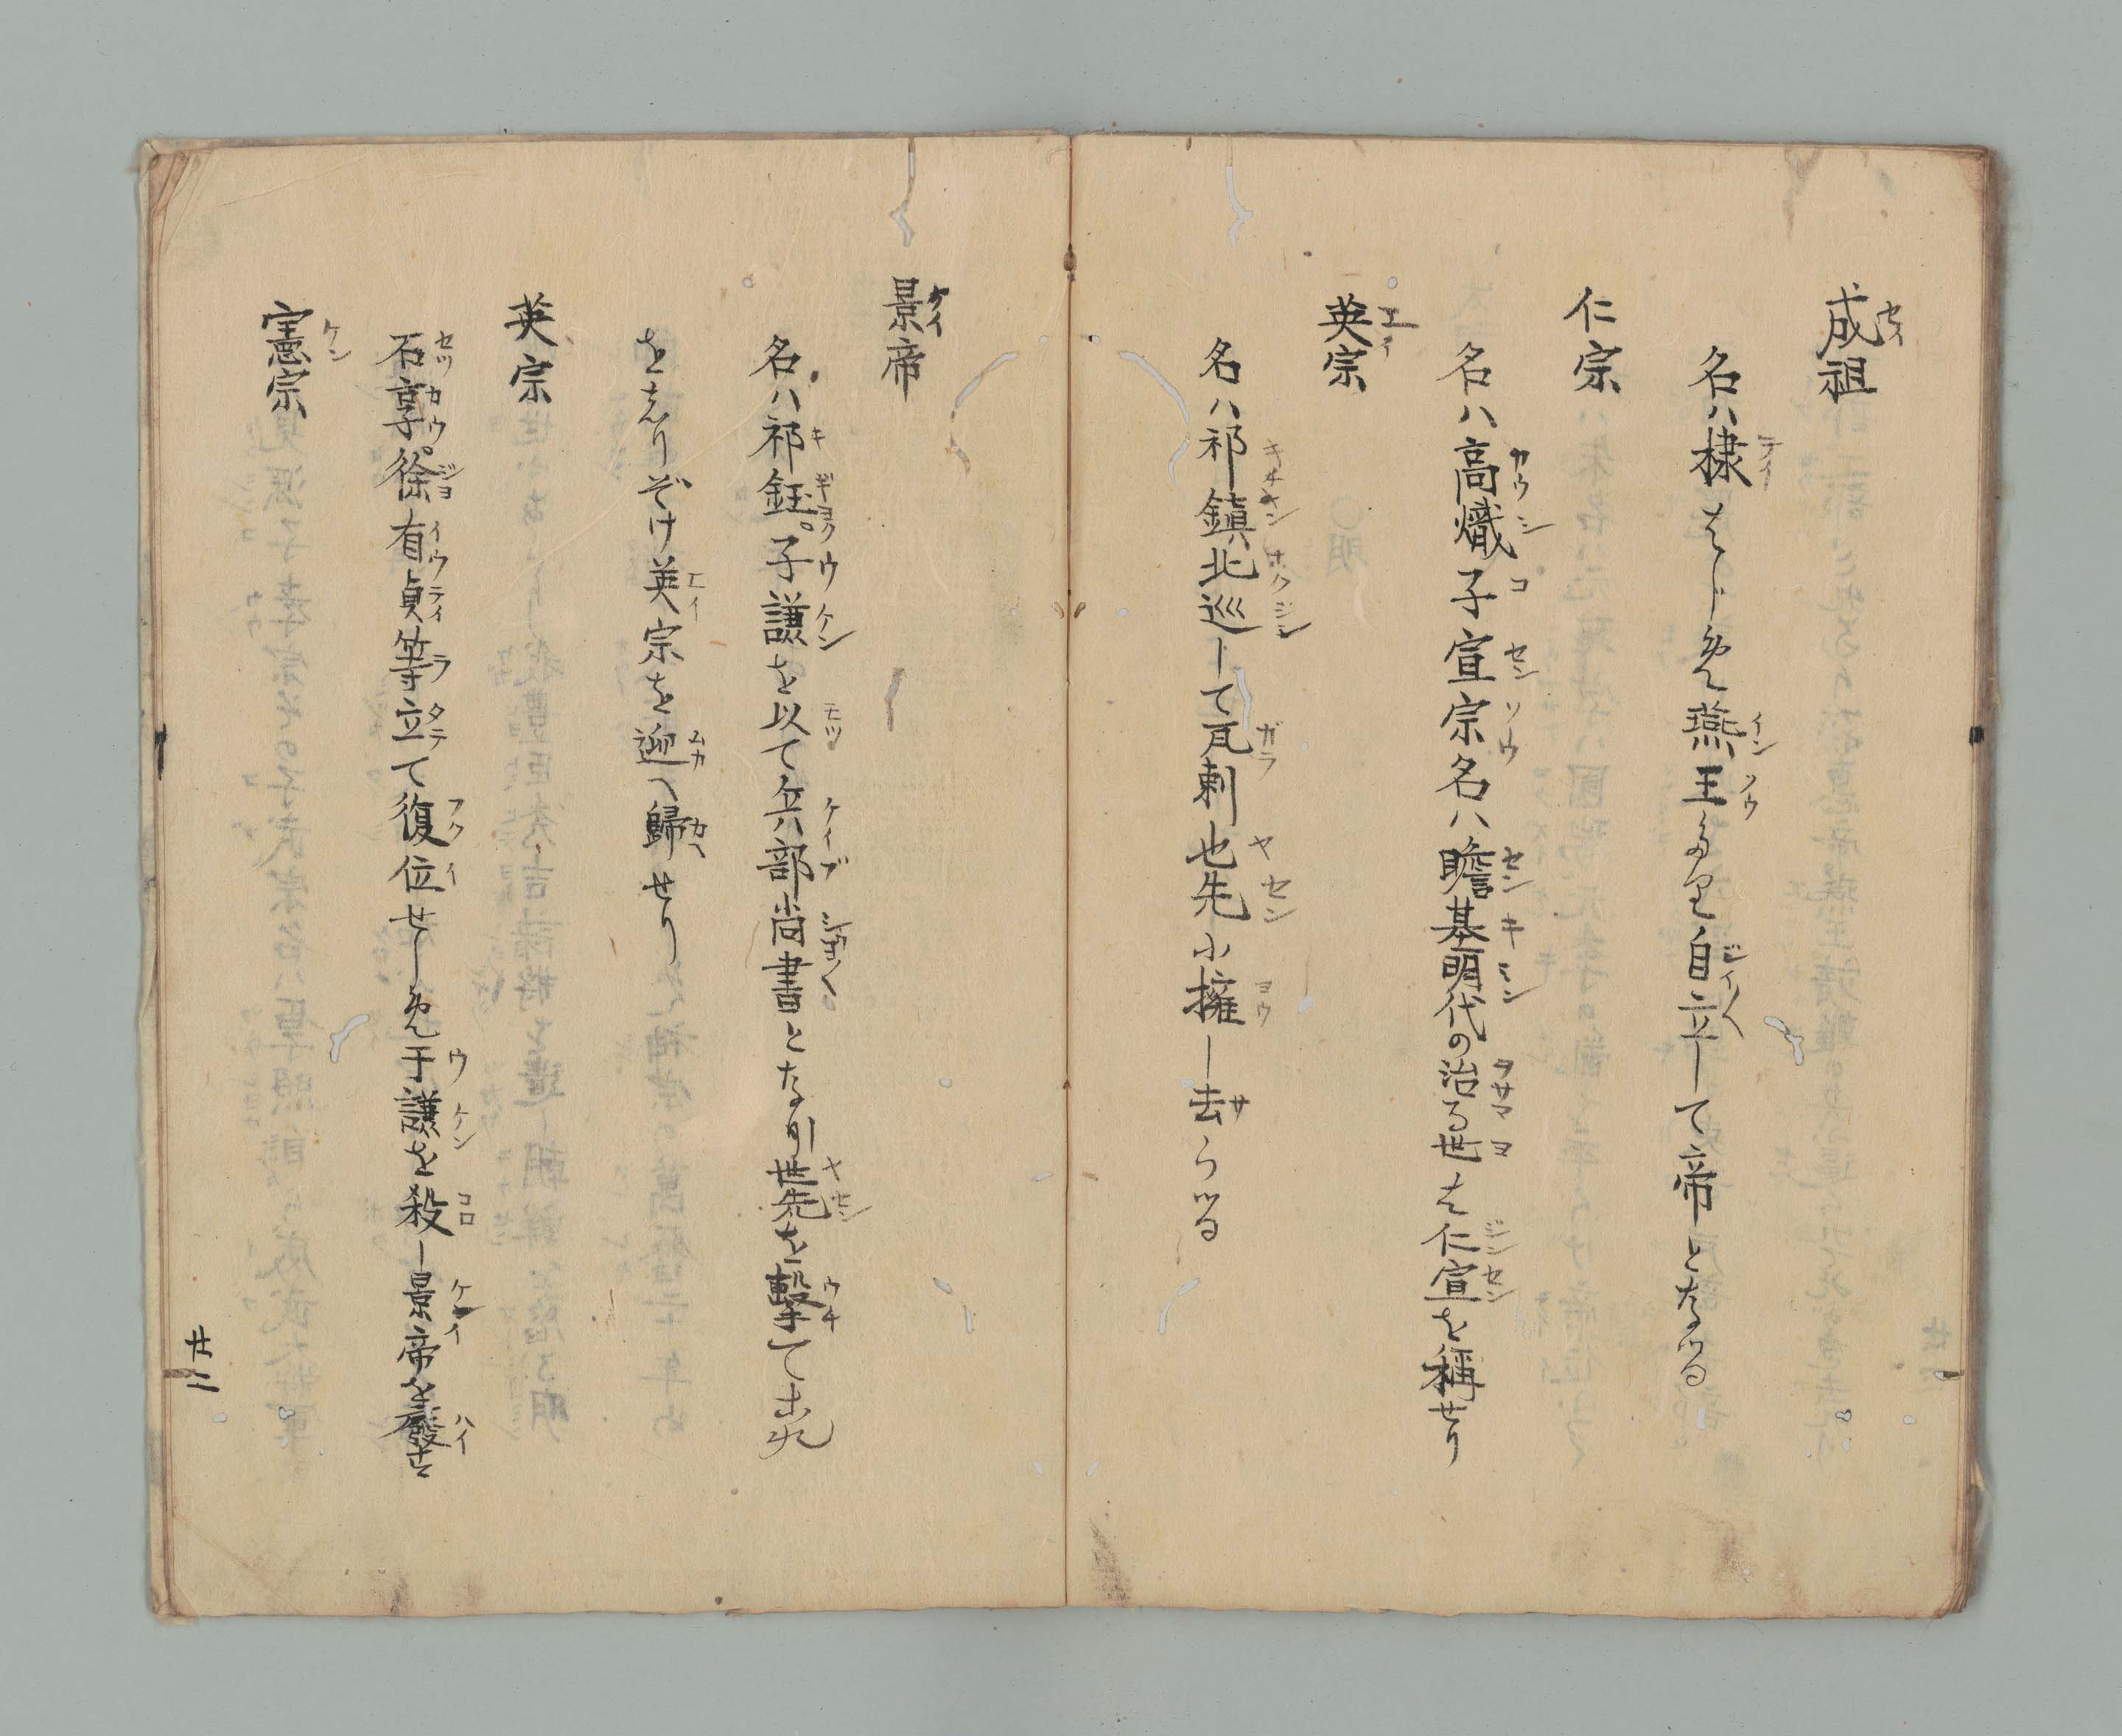 成祖
名ハ棣はじめ燕王たり自立して帝となる
仁宗
名ハ高熾子宣宗名ハ瞻基明代の治る世は仁宣を稱せり
英宗
名ハ祁鎮北巡して瓦剌也先に擁し去らる
景帝
名ハ祁鈺。子謙を以て兵部尚書となし也先を撃て出九
をしりぞけ英宗を迎へ歸せり
英宗
石享。徐有貞等立て復位せしめ于謙を殺し景帝を廢す
憲宗
廿二